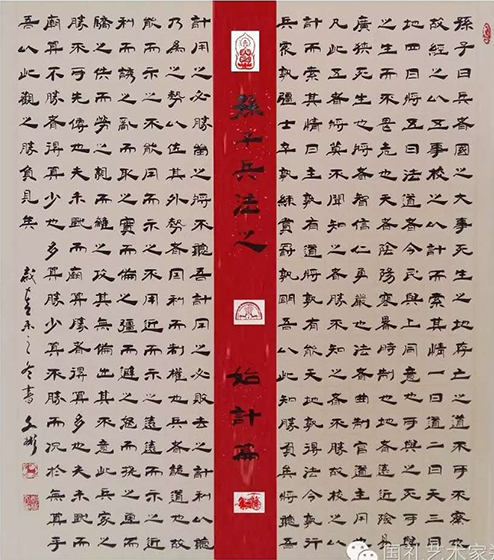 孫子曰兵者國之大事死生之地存亡之道不可不察也
故經之以五事校之以計而索其情一曰道二曰天三曰
地四曰將五曰法道者令民與上同意也可與之死可與
之生而不畏危也天者陰陽寒暑時制也地者遠近險易
廣狹死生也將者智信仁勇嚴也法者曲制官道主用也
凡此五者將莫不聞知之者勝不知之者不勝故校之以
計而索其情曰主孰有道將孰有能天地孰得法令孰行
兵眾孰彊士卒孰練賞罰孰明吾以此知勝負矣將聽吾
孫子兵法之
始計篇
計用之必勝留之將不聽吾計用之必敗去之計利以聽
乃為之勢以佐其外勢者因利而制權也兵者詭道也故
能而示之不能用而示之不用近而示之遠遠而示之近
利而誘之亂而取之實而備之彊而避之怒而撓之卑而
驕之佚而勞之親而離之攻其無備出其不意此兵家之
勝不可先傳也夫未戰而廟算勝者得算多也未戰而
廟算不勝者得算少也多算勝少算不勝而況於無算乎
吾以此觀之勝負見矣
未之冬書文彬
国礼艺术家